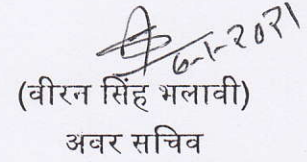 6-1-2021
(वीरन सिंह भलावी)
अवर सचिव